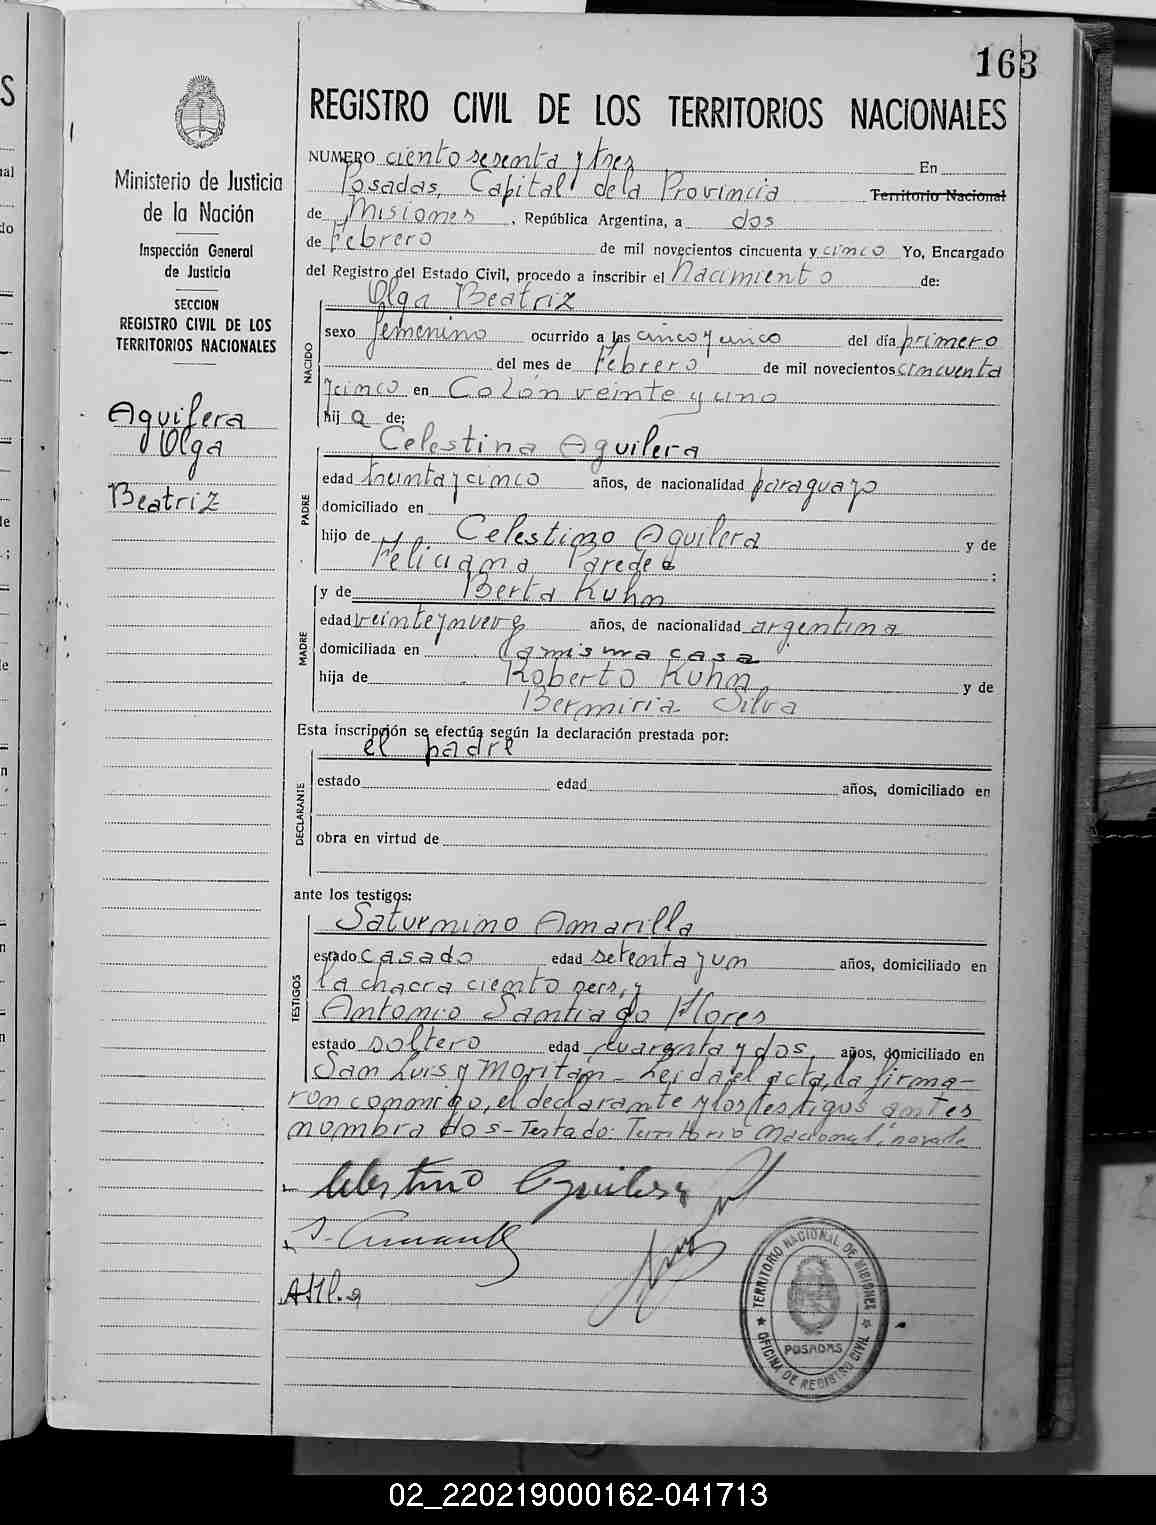 163
REGISTRO CIVIL DE LOS TERRITORIOS NACIONALES
Ministerio de Justicia
de la Nación
Inspección General
de Justicia
SECCION
REGISTRO CIVIL DE LOS
TERRITORIOS NACIONALES
Aguilera
Olga
Beatriz
NUMERO ciento sesenta y tres En
Posadas, Capital de la Provincia Territorio Nacional
de Misiones, República Argentina, a dos
de Febrero de mil novecientos cincuenta y cinco Yo, Encargado
del Registro del Estado Civil, procedo a inscribir el Nacimiento de:
Olga Beatriz
NACIDO
sexo femenino ocurrido a las cinco y cinco del día primero
del mes de Febrero de mil novecientos cincuenta
y cinco en Colón veinte y uno
hij a de:
Celestino Aguilera
PADRE
edad treinta y cinco años, de nacionalidad paraguayo
domiciliado en
hijo de Celestino Aguilera y de
Feliciana Paredes ;
y de Berta Kuhn
MADRE
edad veinte y nueve años, de nacionalidad argentina
domiciliada en la misma casa
hija de Roberto Kuhn y de
Silva
Esta inscripción se efectúa según la declaración prestada por:
el padre
DECLARANTE
estado edad años, domiciliado en
obra en virtud de
ante los testigos:
Saturnino Amarilla
TESTIGOS
estado casado edad setenta y un años, domiciliado en
la chacra ciento seis, y
Antonio Santiago Flores
estado soltero edad cuarenta y dos, años, domiciliado en
San Luis y Moritán - Leída el acta, la firma-
ron conmigo, el declarante y los testigos antes
nombrados - Testado: Territorio Nacional, no vale
Celestino Aguilera
TERRITORIO NACIONAL DE MISIONES
POSADAS
OFICINA DE REGISTRO CIVIL
02_220219000162-041713